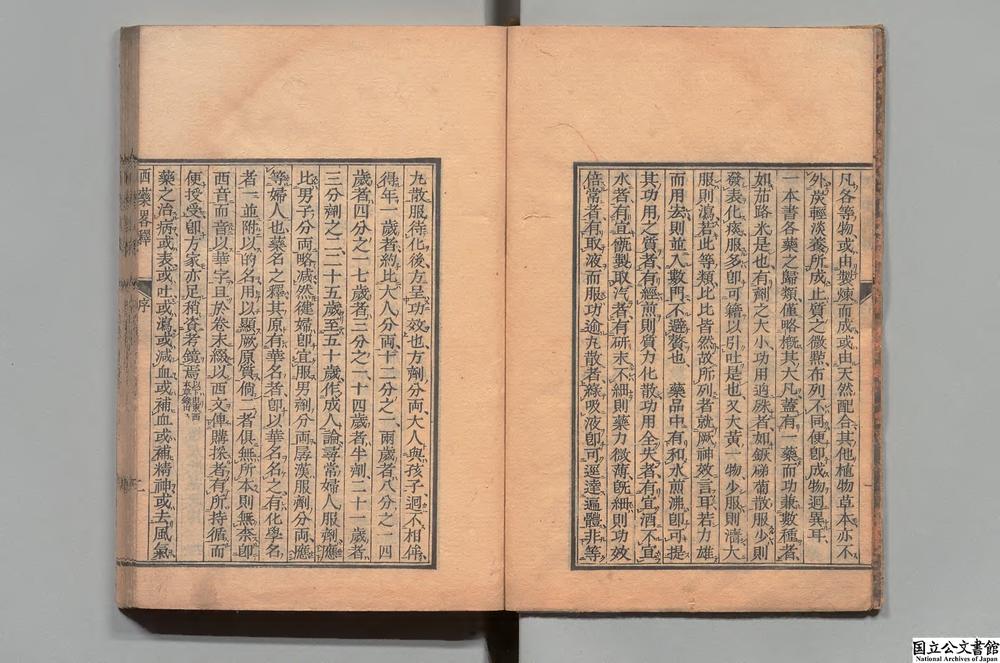 凡各等物或由製煉而成或由天然配合其他植物草本亦不
外炭輕淡養所成止質之微㸃布列不同便卽成物迥異耳
一本書各藥之歸類僅略概其大凡蓋有一藥而功兼數種者
如茄路米是也有劑之大小功用逈殊者如銻碲葡散服少則
發表化痰服多卽可藉以引吐是也又大黃一物少服則濇大
服則瀉若此等類比比皆然故所列者就厥神效言耳若力雄
而用去則並入數門不避贅也 藥品中有和水煎沸卽可提
其功用之質者有經煎則質力化散功用全失者有宜酒不宜
水者有宜甑製取汽者有硏末不細則藥力微薄旣細則功效
倍常者有取液而服功逾丸散者蓀吸液卽可逕達遍體非等
丸散服待化後方呈功效也方劑分兩大人與孩子迥不相侔
得年一歲者約比大人分兩十二分之一兩歲者八分之一四
歲者四分之一七歲者三分之一十四歲者半劑二十一歲者
三分劑之二二十五歲至五十歲作成人論尋常婦人服劑應
比男子分兩略減然健婦卽宜服男劑分兩孱漢服劑分兩應
等婦人也藥名之釋其原有華名者卽以華名名之有化學名
者一並附以的名用以顯厥原質倘二者俱無所本則無柰卽
西音而音以華字且於卷末綴以西文傳購採者有所持循而
便授受卽方家亦足稍資考鏡焉
藥之治病或表或吐或瀉或減血或補血或補精神或去風氣
西藥畧釋
序
二
国立公文書館
National Archives of Japan